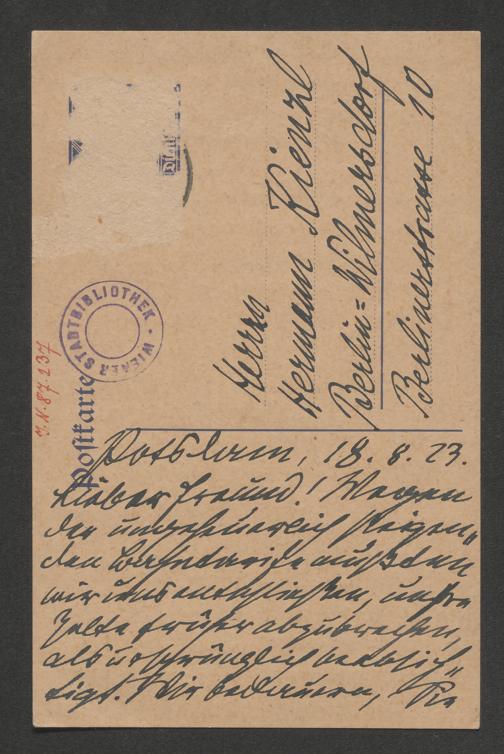 Postkarte
WIENER STADTBIBLIOTHEK
J.N. 87.237
Herrn
Hermann Kienzl
Berlin=Wilmersdorf
Berlinerstrasse 10
Potsdam, 18. 8. 23.
Lieber Freund! Wegen
der ungeheuerlich steigen„
den Bahntarife mußten
wir uns entschließen, unsre
Zelte früher abzubrechen,
als ursprünglich beabsich„
tigt. Wir bedauern, Sie